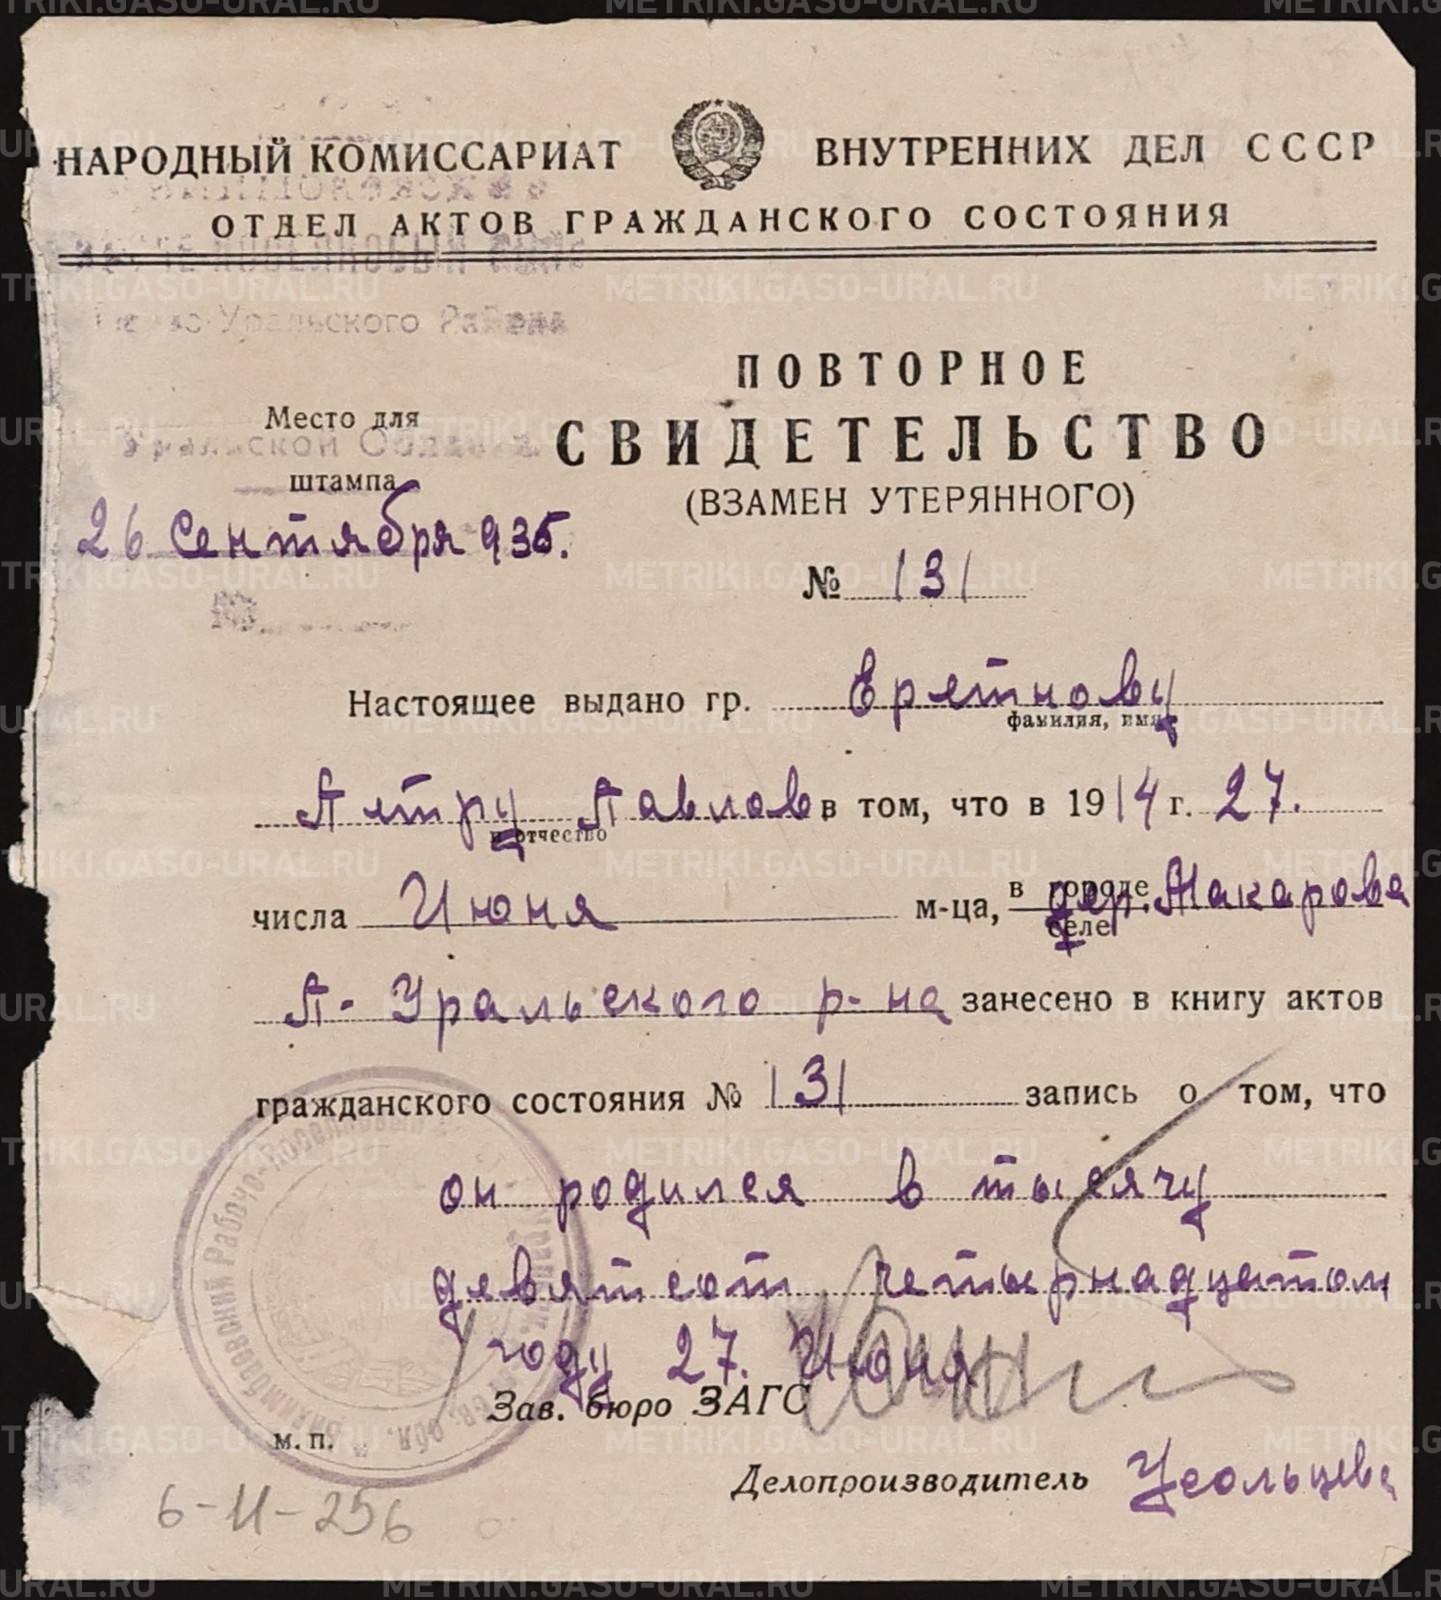 НАРОДНЫЙ КОМИССАРИАТ ВНУТРЕННИХ ДЕЛ СССР
ОТДЕЛ АКТОВ ГРАЖДАНСКОГО СОСТОЯНИЯ
Уральского Района
ПОВТОРНОЕ
Место для
Уральской Области
СВИДЕТЕЛЬСТВО
штампа
(ВЗАМЕН УТЕРЯННОГО)
26 Сентября 935.
№ 131
Настоящее выдано гр. Еретнову
фамилия, имя
Петру Павлов в том, что в 1914 г. 27.
и отчество
числа Июня м-ца, в городе селе дер. Макарова
П-Уральского р-на занесено в книгу актов
гражданского состояния № 131 запись о том, что
он родился в тысячу
девятсот четырнадцатом
году 27. Июня
Зав. бюро ЗАГС
м. п.
Билимбаевский Рабоче-Поселковый
Делопроизводитель Усольцева
6-11-256
METRIKI.GASO-URAL.RU